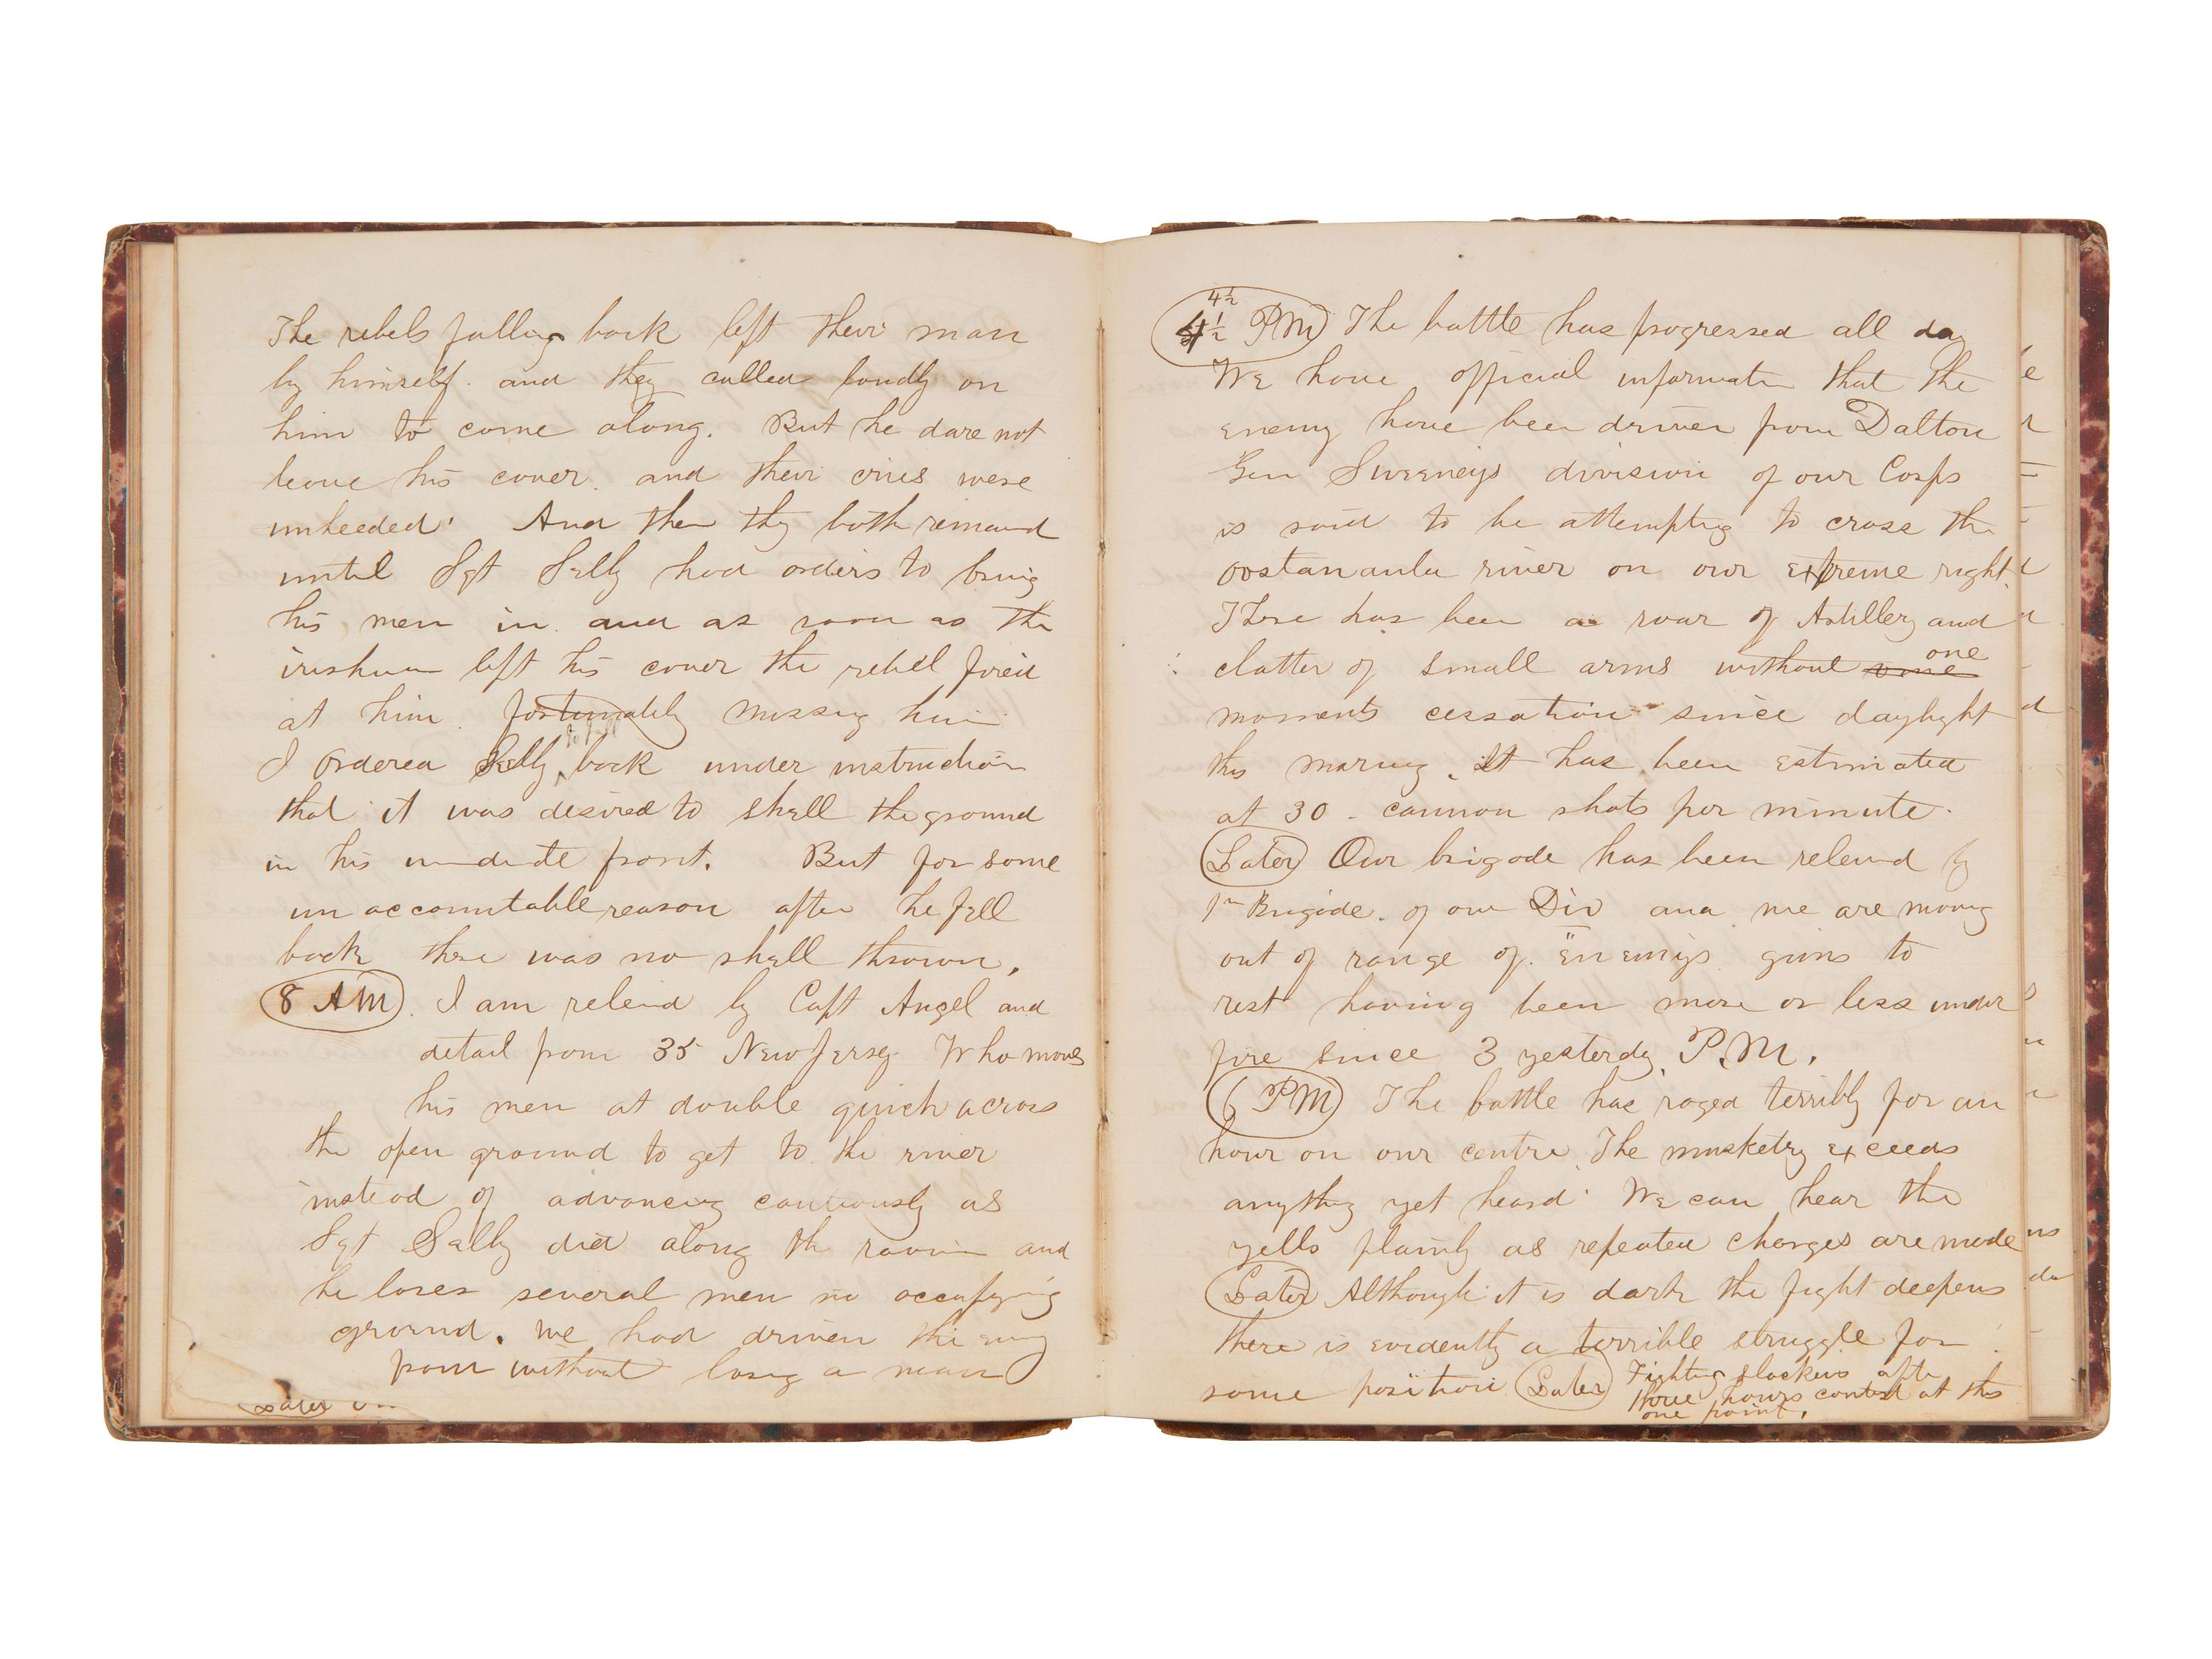 The rebels falling back left their man
by himself. and they called loudly on
him to come along. But he dare not
leave his cover. and their cries were
unheeded. And then thy both remaind
until Sgt Selly had orders to bring
his men in. and as soon as the
irishman left his cover the rebel fired
at him. fortunately missing him
I ordered Selly to fall back under instruction
that it was desired to shell the ground
in his immediate front. But for some
unaccountable reason after he fell
back there was no shell thrown.
8 AM. I am relievd by Capt Angel and
detail from 35 New Jersey Who moves
his men at double quick across
the open ground to get to the river
instead of advancing cautiously as
Sgt Selly did along the ravine and
he loses several men in occupying
ground. We had driven the enmy
from without losing a man
Later
4½
4½ PM The battle has progressed all day
We have official informatin that the
enemy have been driven from Dalton
Gen Sweeneys division of our Corps
is said to be attemptig to cross the
Oostanaula river on our extreme right.
There has been a roar of Artillery and
clatter of small arms without one
moments cessation since daylight
this morning. It has been estimated
at 30 - cannon shots per minute.
Later Our brigade has been relievd by
1st Brigade. of our Div and we are moving
out of range of Enemys guns to
rest having been more or less under
fire since 3 yesterdy P.M.
6 PM The battle has raged terribly for an
hour on our centre. The musketry exceeds
anythig yet heard. We can hear the
yells plainly as repeated charges are made
Later Although it is dark the fight deepens
there is evidently a terrible struggle for
some position Later Fighting slackens after
three hours contest at this
one point.